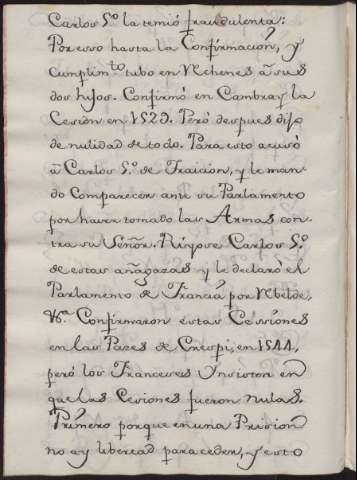 Carlos 5º la temió fraudulenta:
Por esso hasta la Confirmación, y
Cumplim.to tubo en Rehenes â sus
dos hijos. Confirmó en Cambray la
Cesion en 1529. Peró despues dijo
de nulidad de todo. Para esto acusó
â Carlos 5º de Traicion, y le man-
do Comparecer ante su Parlamento
por haver tomado las Armas con-
tra su Señor. Riyose Carlos 5º
de estas añagazas y le declaró el
Parlamento de Franciâ por Rebelde.
Confirmaron estas Cessiones
en las Pazes de Crespi, en 1544,
peró los Franceses Insisten en
que las Cesiones fueron nulas.
Primero porque en una Prision
no ay libertad para ceder, y esto